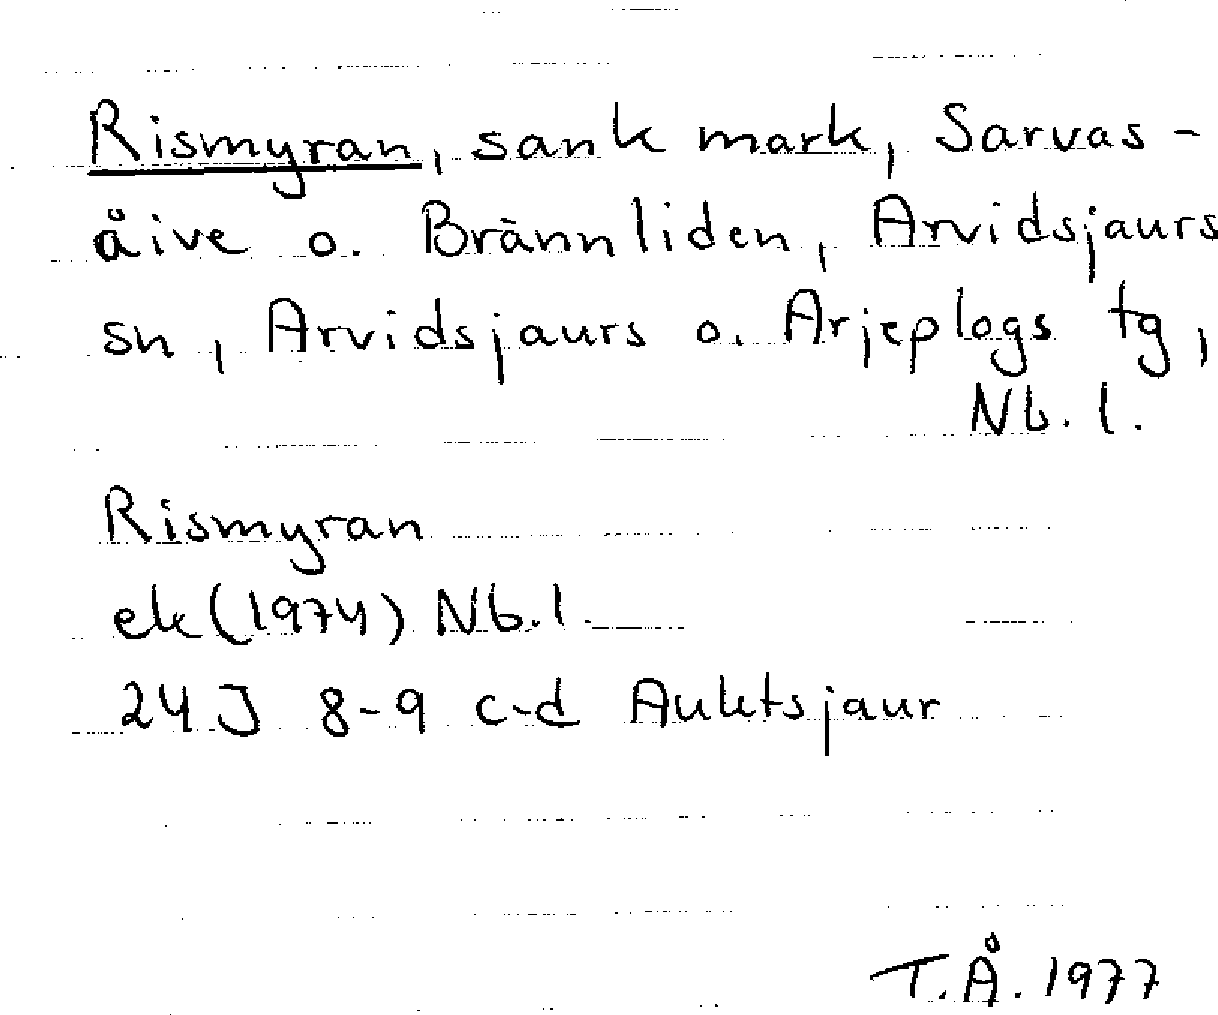 Rismyran, sank mark, Sarvas-
åive o. Brännliden, Arvidsjaurs
sn, Arvidsjaurs o. Arjeplogs tg,
Nb. l.
Rismyran
ek (1974) Nb. l
24 J 8-9 c-d Auktsjaur
T.Å. 1977